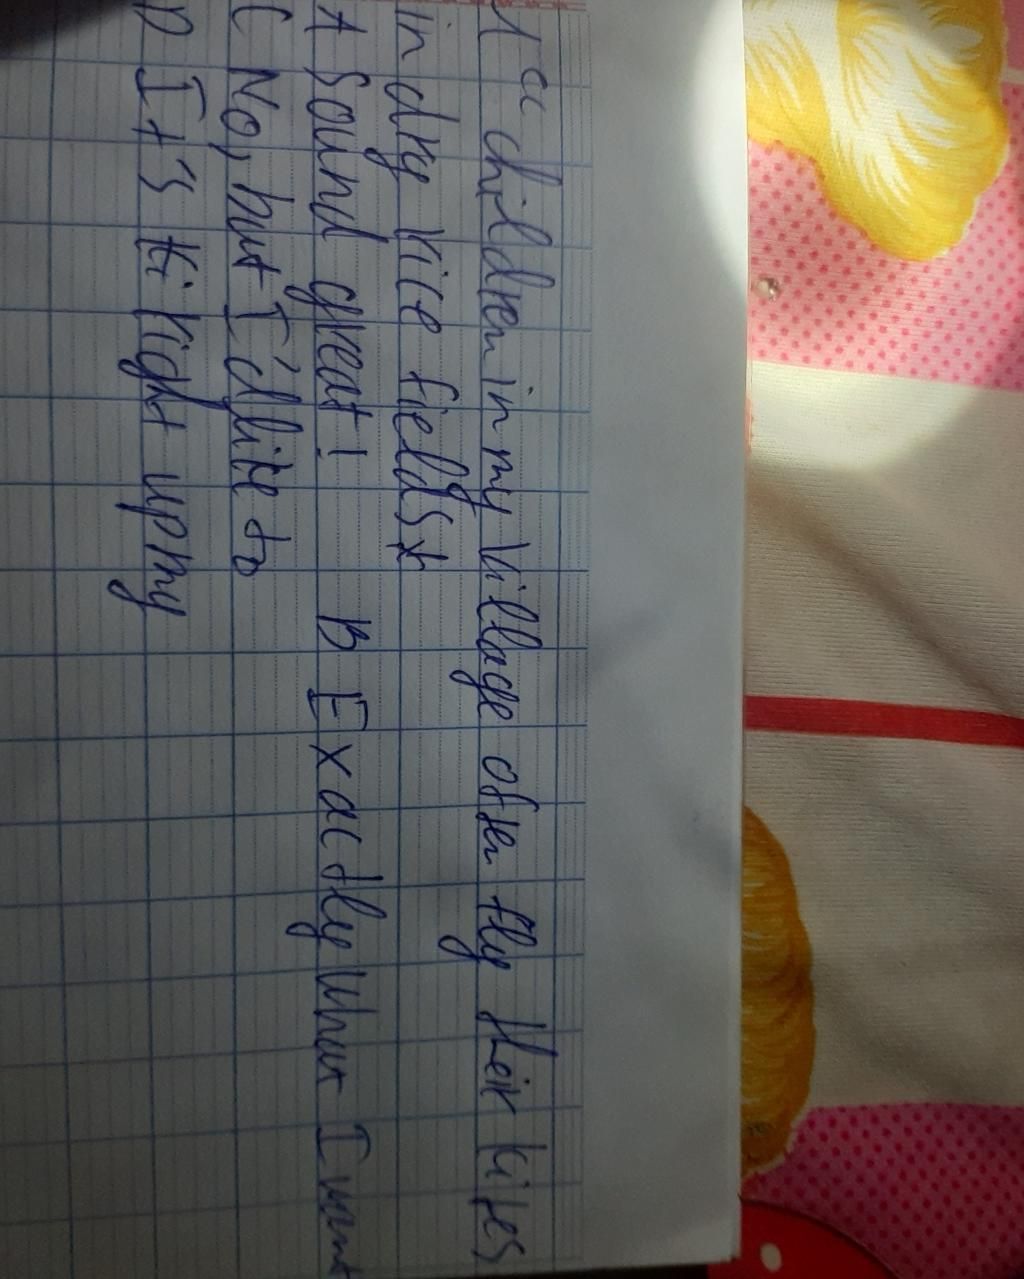 1 a children in my village often fly their kites
in dry rice fields
A Sound great! B Exactly what I want
C No, but I'd like to
D It's right up my